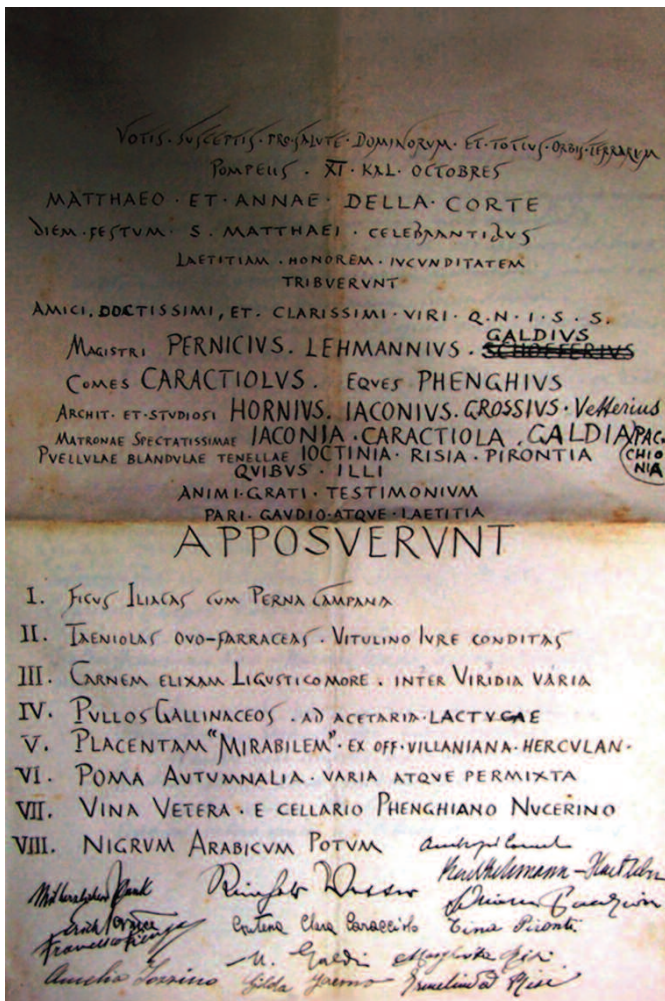 VOTIS · SVSCEPTIS · PRO · SALVTE · DOMINORVM · ET · TOTIVS · ORBIS · TERRARVM
POMPEIIS · XI · KAL · OCTOBRES
MATTHAEO · ET · ANNAE · DELLA · CORTE
DIEM · FESTVM · S · MATTHAEI · CELEBRANTIBVS
LAETITIAM · HONOREM · IVCVNDITATEM
TRIBVERVNT
AMICI, DOCTISSIMI, ET · CLARISSIMI · VIRI · Q · N · I · S · S ·
GALDIVS
MAGISTRI PERNICIVS · LEHMANNIVS · SCHOEFERIVS
COMES CARACTIOLVS · EQVES PHENGHIVS
ARCHIT · ET · STVDIOSI HORNIVS · IACONIVS · GROSSIVS · Vetterius
MATRONAE SPECTATISSIMAE IACONIA · CARACTIOLA · GALDIA PAC
PVELLVLAE BLANDVLAE TENELLAE IOCTINIA · RISIA · PIRONTIA CHIO
QVIBVS · ILLI NIA
ANIMI · GRATI · TESTIMONIVM
PARI · GAVDIO · ATQVE · LAETITIA
APPOSVERVNT
I. FICVS ILIACAS CVM PERNA CAMPANA
II. TAENIOLAS OVO-FARRACEAS · VITVLINO IVRE CONDITAS
III. CARNEM ELIXAM LIGVSTICO MORE · INTER VIRIDIA VARIA
IV. PVLLOS GALLINACEOS · AD ACETARIA · LACTVCAE
V. PLACENTAM "MIRABILEM" · EX OFF · VILLANIANA · HERCVLAN ·
VI. POMA AVTVMNALIA · VARIA ATQVE PERMIXTA
VII. VINA VETERA · E CELLARIO PHENGHIANO NVCERINO
VIII. NIGRVM ARABICVM POTVM
Contessa Clara Caracciolo Tina Pironti
M. Galdi Margherita Risi
Amelia Gilda Ermelinda Risi